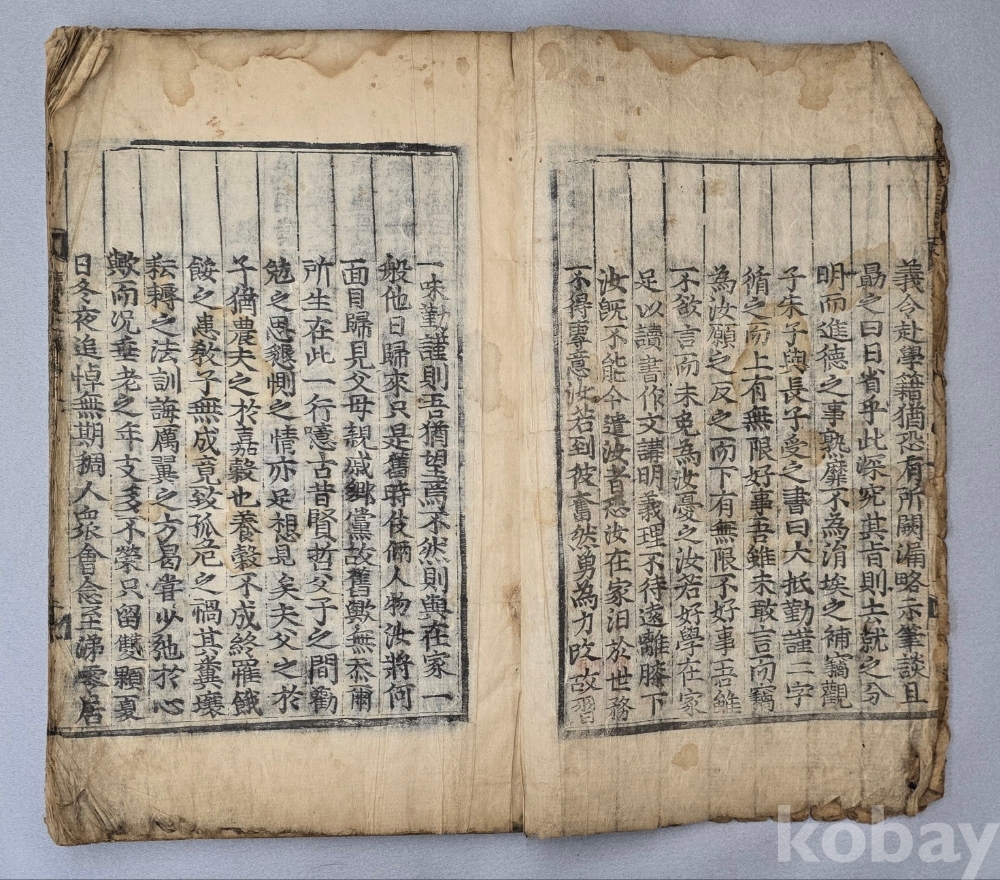 義令赴學籍猶恐有所闕漏略示筆談且
勗之曰日省乎此深究其旨則去就之分
明而進德之事熟靡不為涓埃之補竊觀
子朱子與長子受之書曰大抵勤謹二字
循之而上有無限好事吾雖未敢言而竊
為汝願之反之而下有無限不好事吾雖
不欲言而未免為汝憂之汝若好學在家
足以讀書作文講明義理不待遠離膝下
汝旣不能今遣汝者恐汝在家汨於世務
不得專意汝若到彼奮然勇為力改故習
一味勤謹則吾猶望焉不然則與在家一
般他日歸來只是舊時伎倆人物汝將何
面目歸見父母親戚鄕黨故舊歟無忝爾
所生在此一行噫古昔賢哲父子之間勸
勉之思懇惻之情亦足想見矣夫父之於
子猶農夫之於嘉穀也養穀不成終罹餓
餒之患敎子無成竟致孤厄之禍其糞壤
耘耨之法訓誨厲翼之方曷嘗少弛於心
歟而况垂老之年支多不榮只留雙顆夏
日冬夜追悼無期稠人衆會念至涕零居
kobay